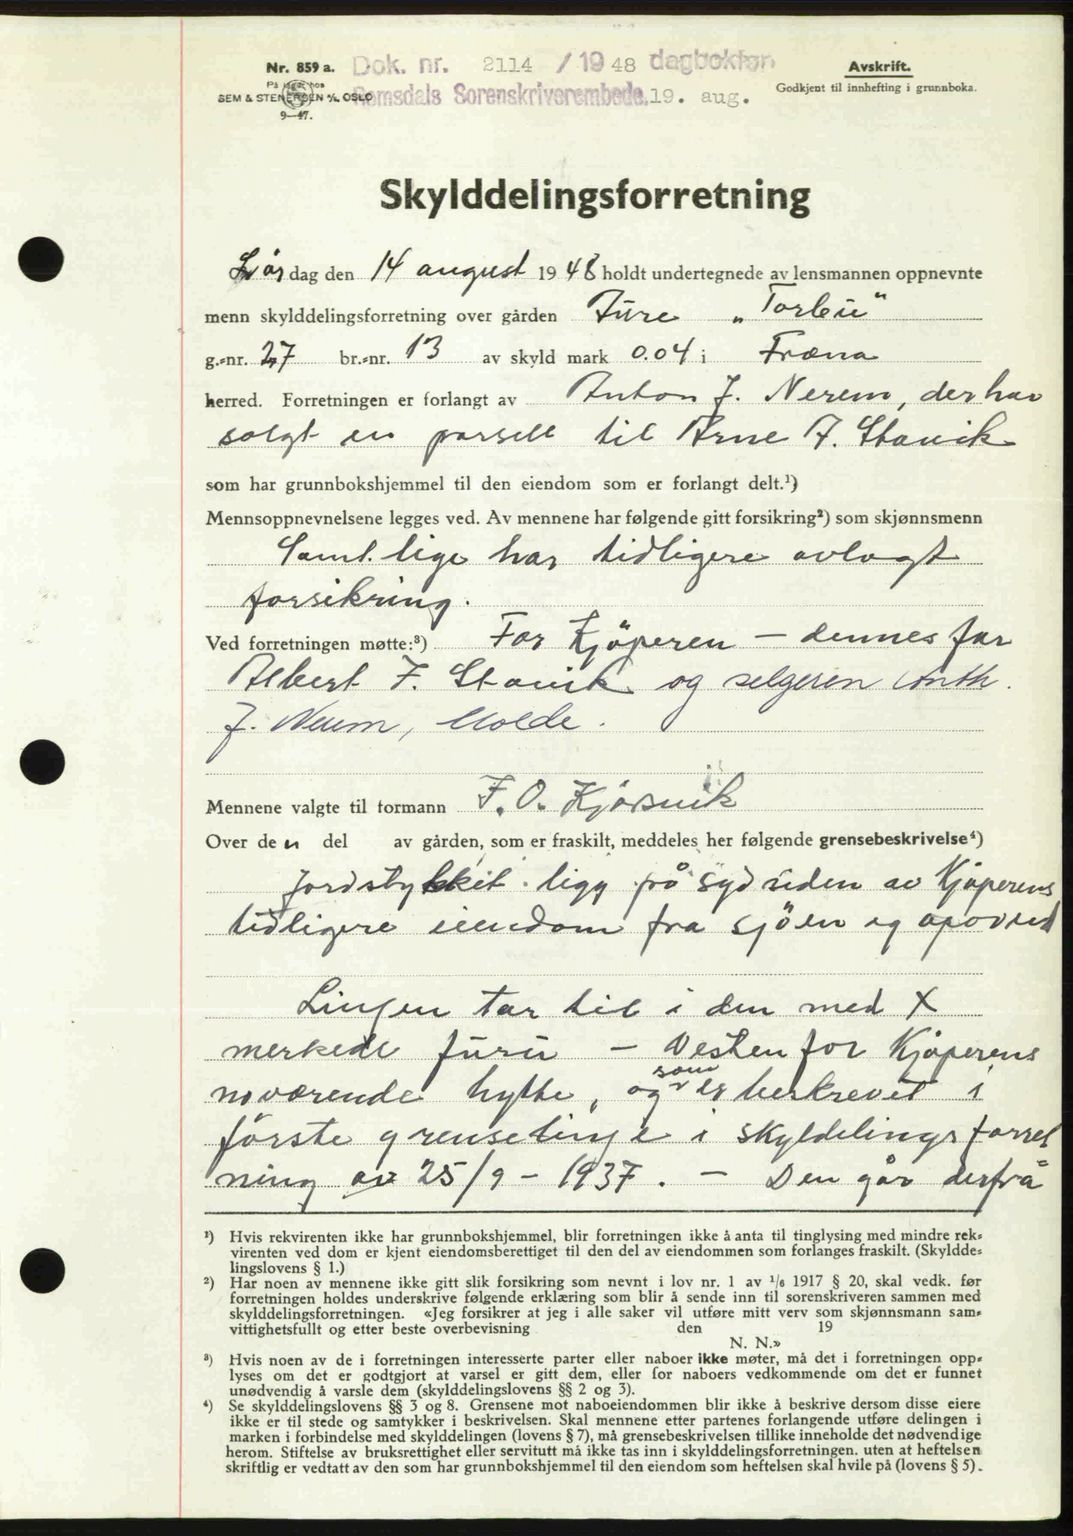 Nr. 859 a.
På lager hos
SEM & STENERSEN A/S OSLO
9—47.
Dok. nr. 2114 / 19 48 dagbokført
Romsdals Sorenskriverembede, 19. aug.
Avskrift.
Godkjent til innhefting i grunnboka.
Skylddelingsforretning
Lør dag den 14 august 19 48 holdt undertegnede av lensmannen oppnevnte
menn skylddelingsforretning over gården Jure „Torbu“
g.-nr. 27 br.-nr. 13 av skyld mark 0.04 i Fræna
herred. Forretningen er forlangt av Anton J. Nerem, der har
solgt en parsell til Arne F. Stavik
som har grunnbokshjemmel til den eiendom som er forlangt delt.¹)
Mennsoppnevnelsene legges ved. Av mennene har følgende gitt forsikring²) som skjønnsmenn
Samtlige har tidligere avlagt
forsikring.
Ved forretningen møtte:³) For Kjöperen — dennes far
Albert F. Stavik og selgeren Anth.
J. Nerem, Molde.
Mennene valgte til formann F. O. Kjörsvik
Over de n del av gården, som er fraskilt, meddeles her følgende grensebeskrivelse⁴)
Jordstykket ligg på syd siden av Kjøperens
tidligere eiendom fra sjöen og opover
Linjen tar til i den med X
merkede furu — Vesten for Kjøperens
noværende hytte, og som er beskrevet i
förste grenselinje i skyldelingsforret
ning av 25/9 - 1937. — Den går derfrå
¹) Hvis rekvirenten ikke har grunnbokshjemmel, blir forretningen ikke å anta til tinglysing med mindre rek-
virenten ved dom er kjent eiendomsberettiget til den del av eiendommen som forlanges fraskilt. (Skyldde-
lingslovens § 1.)
²) Har noen av mennene ikke gitt slik forsikring som nevnt i lov nr. 1 av ¹/₆ 1917 § 20, skal vedk. før
forretningen holdes underskrive følgende erklæring som blir å sende inn til sorenskriveren sammen med
skylddelingsforretningen. «Jeg forsikrer at jeg i alle saker vil utføre mitt verv som skjønnsmann sam-
vittighetsfullt og etter beste overbevisning den 19
N. N.»
³) Hvis noen av de i forretningen interesserte parter eller naboer ikke møter, må det i forretningen opp-
lyses om det er godtgjort at varsel er gitt dem, eller for naboers vedkommende om det er funnet
unødvendig å varsle dem (skylddelingslovens §§ 2 og 3).
⁴) Se skylddelingslovens §§ 3 og 8. Grensene mot naboeiendommen blir ikke å beskrive dersom disse eiere
ikke er til stede og samtykker i beskrivelsen. Skal mennene etter partenes forlangende utføre delingen i
marken i forbindelse med skylddelingen (lovens § 7), må grensebeskrivelsen tillike inneholde det nødvendige
herom. Stiftelse av bruksrettighet eller servitutt må ikke tas inn i skylddelingsforretningen. uten at heftelsen
skriftlig er vedtatt av den som har grunnbokshjemmel til den eiendom som heftelsen skal hvile på (lovens § 5).